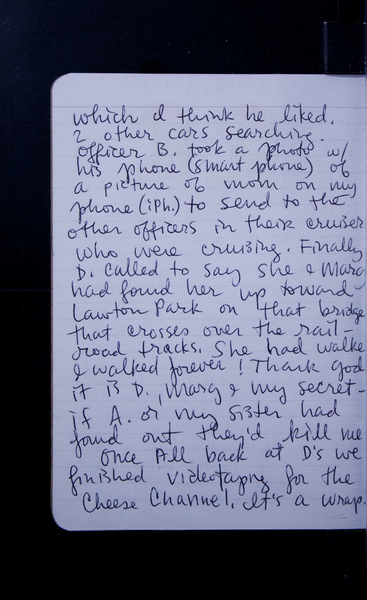 which I think he liked.
2 other cars searching.
Officer B. took a photo w/
his phone (smart phone) of
a picture of mom on my
phone (iPh.) to send to the
other officers in their cruiser
who were cruising. Finally
D. called to say she & Marg
had found her up toward
Lawton Park on that bridge
that crosses over the rail-
road tracks. She had walke
& walked forever! Thank god
it is D., Marg & my secret-
if A. or my sister had
found out they'd kill me
Once All back at D's we
finished videotaping for the
Cheese Channel. It's a wrap.